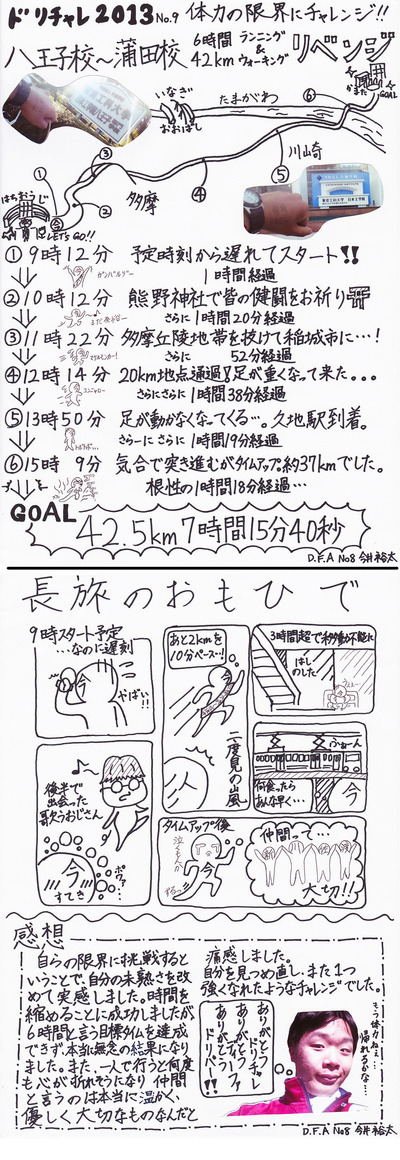 ドリチャレ2013 No.9 体力の限界にチャレンジ!!
八王子校～蒲田校 6時間 42km ランニング & ウォーキング リベンジ
いなぎ
おおはし
たまがわ
⑥
かまた
GOAL
川崎
⑤
④
③
②
①
多摩
はちおうじ
LET'S GO!!
①9時12分 予定時刻から遅れてスタート!!
1時間経過
②10時12分 熊野神社で皆の健闘をお祈り
さらに1時間20分経過
③11時22分 多摩丘陵地帯を抜けて稲城市に…!
さらに 52分経過
④12時14分 20km地点通過!足が重くなって来た。。。
さらにさらに1時間38分経過
⑤13時50分 足が動かなくなってくる…。久地駅到着。
さらーに さらに 1時間19分経過
⑥15時 9分 気合で突き進むがタイムアップ。約37kmでした。
根性の1時間18分経過…
GOAL
42.5km 7時間15分40秒
D.F.A No8 今井裕太
長旅のおもひで
9時スタート予定
…なのに遅刻
今
やばい!!
あと2kmを
10分ペース…!
今
二度見の山風
3時間超で移動不能に
はしの下
何食ったら
あんな早く…
今
後半で
出会った
歌うおじさん
今
すてき
ポッ…
タイムアップ後
泣くもんか
今
仲間って…
大切!!
感想
自らの限界に挑戦すると
いうことで、自分の未熟さを改
めて実感しました。時間を
縮めることに成功しましたが
6時間と言う目標タイムを達成
できず、本当に無念の結果になり
ました。また、一人で行うと何度
も心が折れそうになり 仲間
と言うのは本当に温かく、
優しく大切なものなんだと
痛感しました。
自分を見つめ直し、また1つ
強くなれたようなチャレンジでした。
ありがとう ドリチャレ
ありがとう ディーファ
ありがとう ドリバ!!
もう体力ねぇ…
帰れるかな…
D.F.A No8 今井裕太